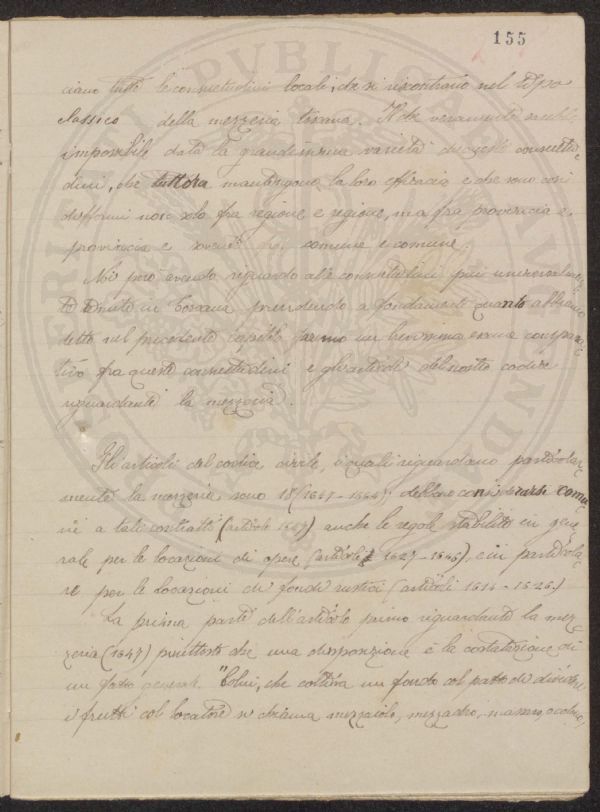 155
ciano tutte le consuetudini locali, che si riscontrano nel tipo
classico della mezzeria toscana. Il che veramente sarebbe
impossibile data la grandissima varietà di queste consuetu-
dini, che tuttora mantengono la loro efficacia e che sono così
difformi non solo fra regione e regione, ma fra provincia e
provincia e sovente fra comune e comune.
Noi però avendo riguardo alle consuetudini più universalmen-
te tenute in Toscana prendendo a fondamento quanto abbiamo
detto nel precedente capitolo faremo un brevissimo esame compara-
tivo fra queste consuetudini e gli articoli del nostro codice
riguardanti la mezzeria.
Gli articoli del codice civile, i quali riguardano particolar-
mente la mezzeria sono 18 (1647-1664); debbono considerarsi comu-
ni a tali contratti (articolo 1647) anche le regole stabilite in gene-
rale per le locazioni di opere (articoli 1627-1646), e in particola-
re per le locazioni di fondi rustici (articoli 1614-1626.)
La prima parte dell'articolo primo riguardante la mez-
zeria (1647) piuttosto che una disposizione è la costatazione di
un fatto generale. "Colui, che coltiva un fondo col patto di dividere
i frutti col locatore si chiama mezzaiolo, mezzadro, massaro, o colono,